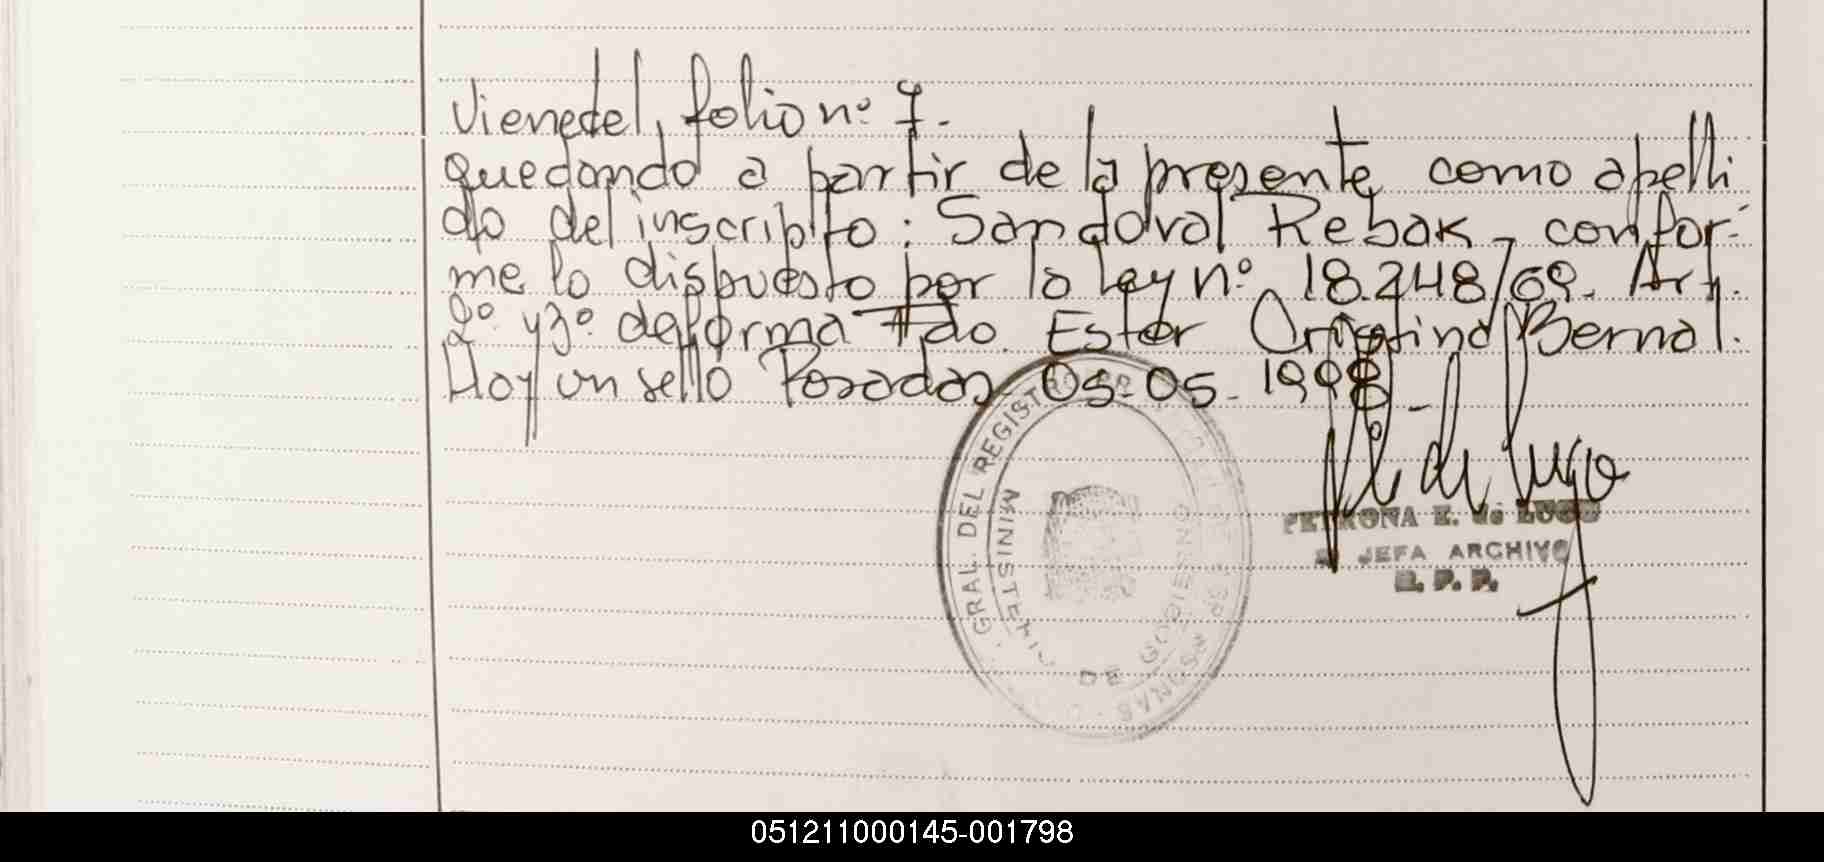 Viene del folio nº 7.
quedando a partir de la presente como apelli
do del inscripto: Sandoval Rebak, confor-
me lo dispuesto por la ley nº 18.248/69. Art.
2º y 3º de forma Fdo. Ester Cristina Bernal.
Hay un sello Posadas 05-05-1998-
GRAL. DEL REGISTRO
MINISTERIO DE GOBIERNO
PETRONA E. de LUGO
JEFA ARCHIVO
R. P. P.
051211000145-001798